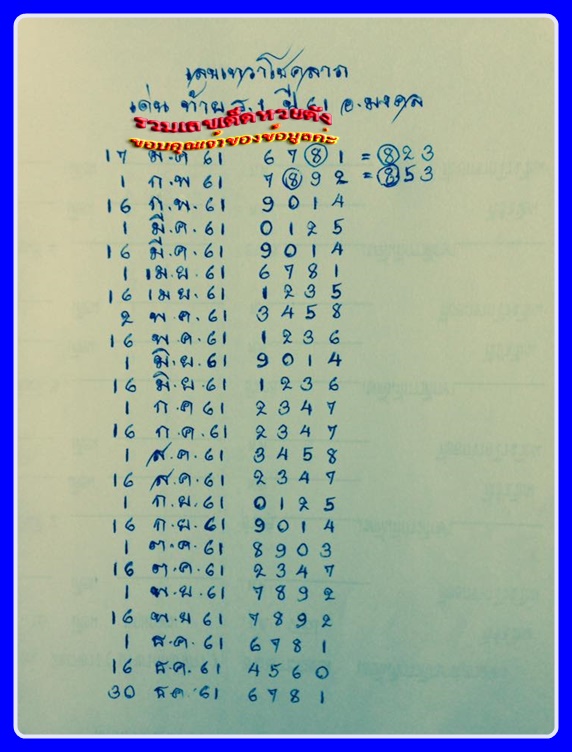 เลขเทวาโชคลาภ
เด่น ท้าย ร.1 ปี 61 อ.มงคล
รวมเลขเด็ดหวยดัง
ขอบคุณเจ้าของข้อมูลค่ะ
17 ม.ค 61 6781 = 823
1 ก.พ 61 7892 = 853
16 ก.พ. 61 9014
1 มี.ค. 61 0125
16 มี.ค. 61 9014
1 เม.ย. 61 6781
16 เม.ย. 61 1235
2 พ.ค. 61 3458
16 พ.ค. 61 1236
1 มิ.ย. 61 9014
16 มิ.ย. 61 1236
1 ก.ค 61 2347
16 ก.ค. 61 2347
1 ส.ค. 61 3458
16 ส.ค. 61 2347
1 ก.ย. 61 0125
16 ก.ย. 61 9014
1 ต.ค. 61 8903
16 ต.ค. 61 2347
1 พ.ย. 61 7892
16 พ.ย 61 7892
1 ธ.ค. 61 6781
16 ธ.ค. 61 4560
30 ธ.ค. 61 6781